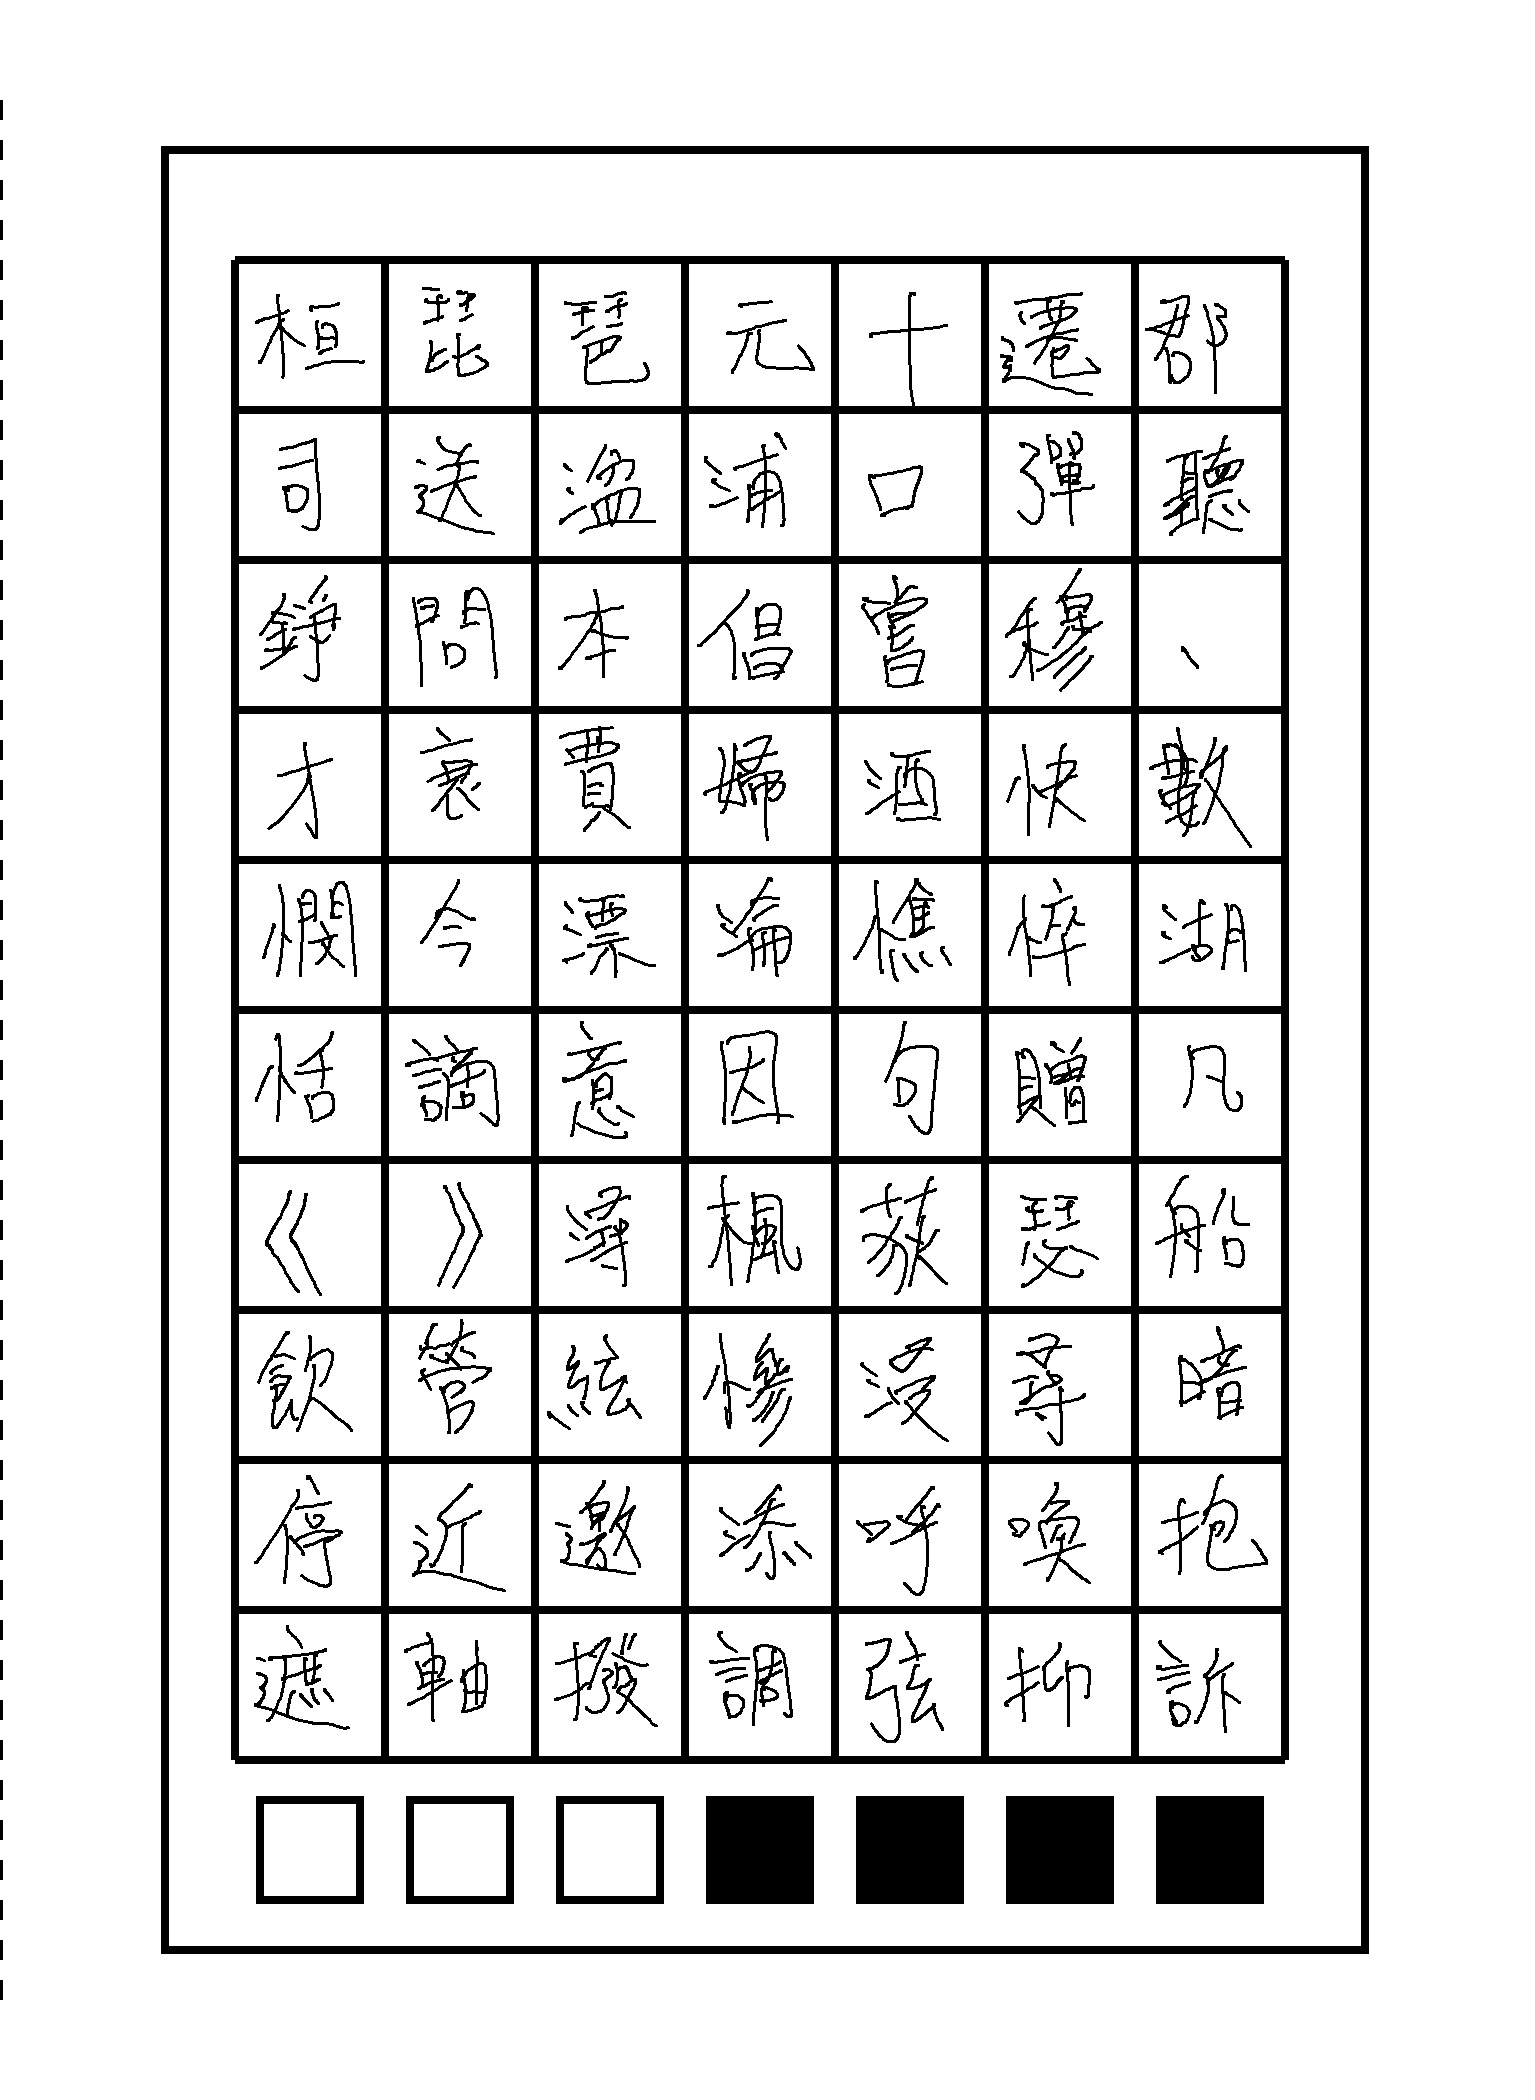 桓琵琶元十遷郡
司送湓浦口彈聽
錚問本倡嘗穆、
才衰賈婦酒快數
憫今漂淪憔悴湖
恬謫意因句贈凡
《》潯楓荻瑟船
飲管絃慘漫尋暗
停近邀添呼喚抱
遮軸撥調弦抑訴